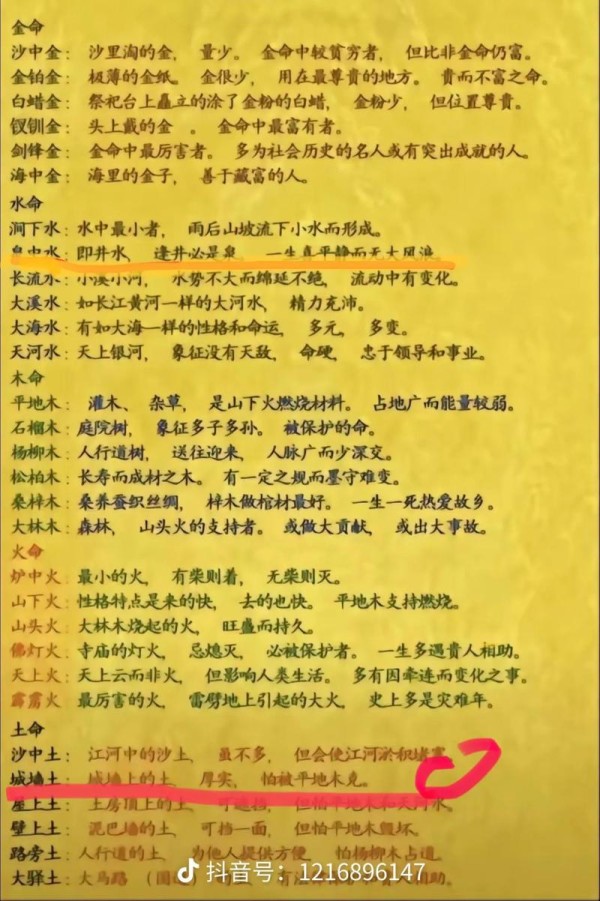 金命
沙中金： 沙里淘的金， 量少。 金命中较贫穷者， 但比非金命仍富。
金铂金： 极薄的金纸。 金很少， 用在最尊贵的地方。 貴而不富之命。
白蜡金： 祭祀台上矗立的涂了金粉的白蜡， 金粉少， 但位置尊贵。
钗钏金： 头上戴的金 。 金命中最富有者。
剑锋金： 金命中最厉害者。 多为社会历史的名人或有突出成就的人。
海中金： 海里的金子， 善于藏富的人。
水命
涧下水： 水中最小者， 雨后山坡流下小水而形成。
泉中水： 即井水， 逢井必是泉， 一生真平静而无大风浪。
长流水： 小溪小河， 水势不大而绵延不绝， 流动中有变化。
大溪水： 如长江黄河一样的大河水， 精力充沛。
大海水： 有如大海一样的性格和命运， 多元， 多变。
天河水： 天上银河， 象征没有天敌， 命硬， 忠于领导和事业。
木命
平地木： 灌木、 杂草， 是山下火燃烧材料。 占地广而能量较弱。
石榴木： 庭院树， 象征多子多孙。 被保护的命。
杨柳木： 人行道树， 送往迎来， 人脉广而少深交。
松柏木： 长寿而成材之木。 有一定之规而墨守难变。
桑梓木： 桑养蚕织丝绸， 梓木做棺材最好。 一生一死热爱故乡。
大林木： 森林， 山头火的支持者。 或做大贡献， 或出大事故。
火命
炉中火： 最小的火， 有柴则着， 无柴则灭。
山下火： 性格特点是来的快， 去的也快。 平地木支持燃烧。
山头火： 大林木烧起的火， 旺盛而持久。
佛灯火： 寺庙的灯火， 忌熄灭， 必被保护者。 一生多遇貴人相助。
天上火： 天上云而非火， 但影响人类生活。 多有因牵连而变化之事。
霹雳火： 最厉害的火， 雷劈地上引起的大火， 史上多是灾难年。
土命
沙中土： 江河中的沙土， 虽不多， 但会使江河淤积堵塞。
城墙土： 城墙上的土， 厚实， 怕被平地木克。
屋上土： 土房顶上的土， 可遮挡， 但怕平地木和天河水。
壁上土： 泥巴墙的土， 可挡一面， 但怕平地木毁坏。
路旁土： 人行道的土， 为他人提供方便， 怕杨柳木占道。
大驿土： 大马路 相助。
抖音号：1216896147